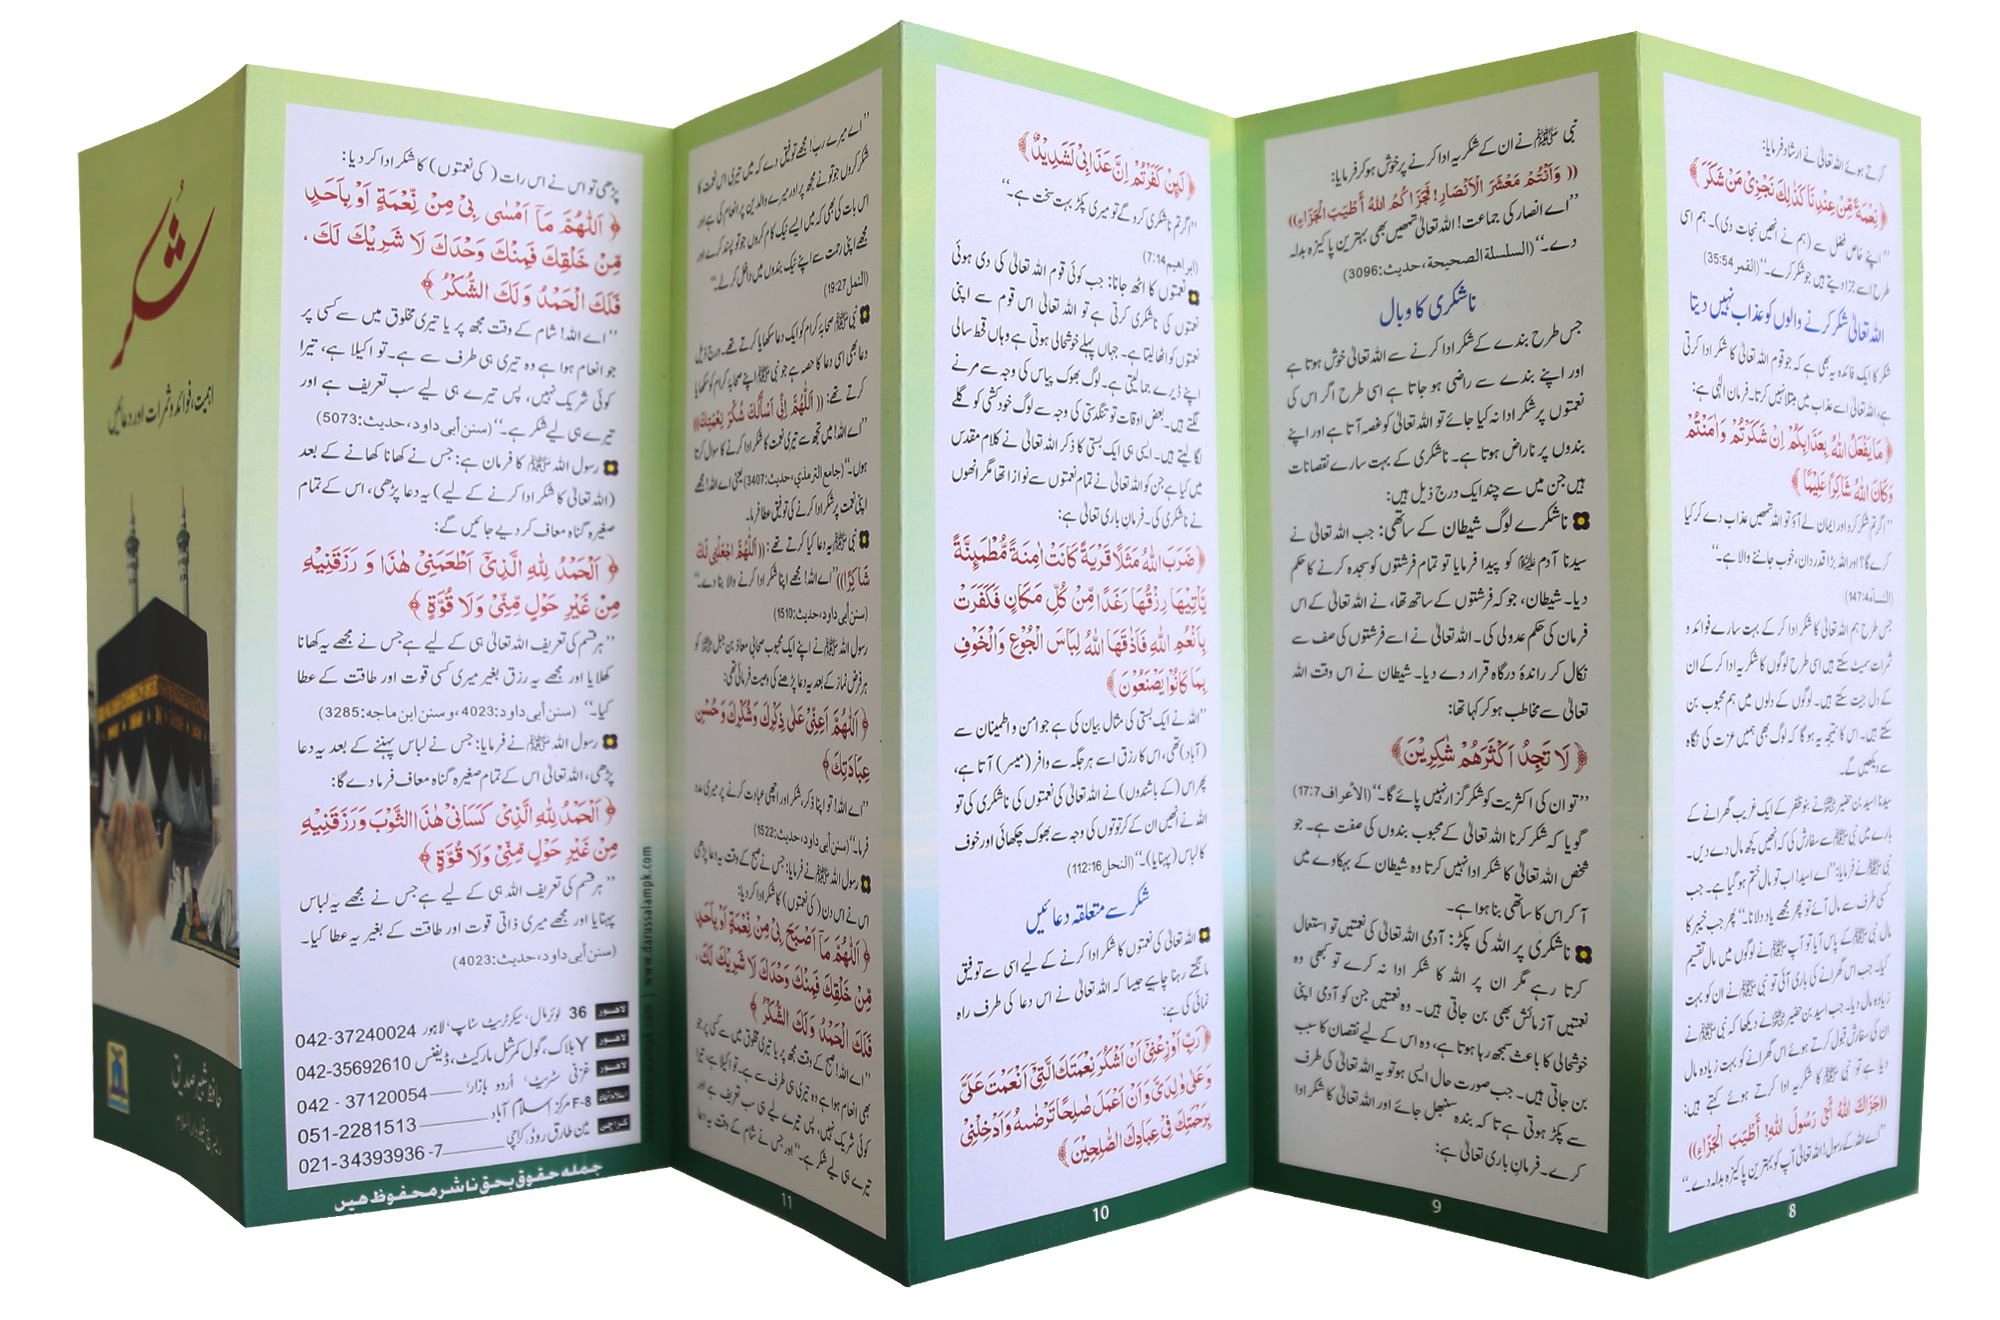 شکر
اہمیت، فوائد و ثمرات اور دعائیں
حافظ شبیر صدیق
کرتے ہوئے اللہ تعالیٰ نے ارشاد فرمایا:
﴿نِعْمَةً مِّنْ عِنْدِنَا كَذٰلِكَ نَجْزِیْ مَنْ شَكَرَ﴾
’’اپنے خاص فضل سے (ہم نے انھیں نجات دی)۔ ہم اسی
طرح اسے جزا دیتے ہیں جو شکر کرے۔‘‘ (القمر 35:54)
اللہ تعالیٰ شکر کرنے والوں کو عذاب نہیں دیتا
شکر کا ایک فائدہ یہ بھی ہے کہ جو قوم اللہ تعالیٰ کا شکر ادا کرتی
ہے، اللہ تعالیٰ اسے عذاب میں مبتلا نہیں کرتا۔ فرمان الٰہی ہے:
﴿مَا یَفْعَلُ اللّٰهُ بِعَذَابِكُمْ اِنْ شَكَرْتُمْ وَاٰمَنْتُمْ
وَكَانَ اللّٰهُ شَاكِرًا عَلِیْمًا﴾
’’اگر تم شکر کرو اور ایمان لے آؤ تو اللہ تمھیں عذاب دے کر کیا
کرے گا؟ اور اللہ بڑا قدردان، خوب جاننے والا ہے۔‘‘
(النساء 147:4)
جس طرح ہم اللہ تعالیٰ کا شکر ادا کر کے بہت سارے فوائد و
ثمرات سمیٹ سکتے ہیں اسی طرح لوگوں کا شکریہ ادا کر کے ان
کے دل جیت سکتے ہیں۔ لوگوں کے دلوں میں ہم محبوب بن
سکتے ہیں۔ اس کا نتیجہ یہ ہوگا کہ لوگ بھی ہمیں عزت کی نگاہ
سے دیکھیں گے۔
سیدنا اسید بن حضیر ؓ نے بنو ظفر کے ایک غریب گھرانے کے
بارے میں نبی ﷺ سے سفارش کی کہ انھیں کچھ مال دے دیں۔
نبی ﷺ نے فرمایا: ’’اے اسید! اب تو مال ختم ہو گیا ہے۔ جب
کسی طرف سے مال آئے تو پھر مجھے یاد دلانا۔‘‘ پھر جب خیبر کا
مال نبی ﷺ کے پاس آیا تو آپ ﷺ نے لوگوں میں مال تقسیم
کیا۔ جب اس گھرانے کی باری آئی تو نبی ﷺ نے ان کو بہت
زیادہ مال دیا۔ جب اسید بن حضیر ؓ نے دیکھا کہ نبی ﷺ نے
ان کی سفارش قبول کرتے ہوئے اس گھرانے کو بہت زیادہ مال
دیا ہے تو نبی ﷺ کا شکریہ ادا کرتے ہوئے کہتے ہیں:
((جَزَاكَ اللّٰهُ أَيْ رَسُولَ اللّٰهِ! أَطْيَبَ الْجَزَاءِ))
’’اے اللہ کے رسول! اللہ تعالیٰ آپ کو بہترین پاکیزہ بدلہ دے۔‘‘
8
نبی ﷺ نے ان کے شکریہ ادا کرنے پر خوش ہو کر فرمایا:
((وَأَنْتُمْ مَعْشَرَ الْأَنْصَارِ! فَجَزَاكُمُ اللّٰهُ أَطْيَبَ الْجَزَاءِ))
’’اے انصار کی جماعت! اللہ تعالیٰ تمھیں بھی بہترین پاکیزہ بدلہ
دے۔‘‘ (السلسلة الصحیحة، حدیث:3096)
ناشکری کا وبال
جس طرح بندے کے شکر ادا کرنے سے اللہ تعالیٰ خوش ہوتا ہے
اور اپنے بندے سے راضی ہو جاتا ہے اسی طرح اگر اس کی
نعمتوں پر شکر ادا نہ کیا جائے تو اللہ تعالیٰ کو غصہ آتا ہے اور اپنے
بندوں پر ناراض ہوتا ہے۔ ناشکری کے بہت سارے نقصانات
ہیں جن میں سے چند ایک درج ذیل ہیں:
ناشکرے لوگ شیطان کے ساتھی: جب اللہ تعالیٰ نے
سیدنا آدم علیہ السلام کو پیدا فرمایا تو تمام فرشتوں کو سجدہ کرنے کا حکم
دیا۔ شیطان، جو کہ فرشتوں کے ساتھ تھا، نے اللہ تعالیٰ کے اس
فرمان کی حکم عدولی کی۔ اللہ تعالیٰ نے اسے فرشتوں کی صف سے
نکال کر راندۂ درگاہ قرار دے دیا۔ شیطان نے اس وقت اللہ
تعالیٰ سے مخاطب ہو کر کہا تھا:
﴿لَا تَجِدُ اَكْثَرَهُمْ شٰكِرِیْنَ﴾
’’تو ان کی اکثریت کو شکر گزار نہیں پائے گا۔‘‘ (الأعراف 17:7)
گویا کہ شکر کرنا اللہ تعالیٰ کے محبوب بندوں کی صفت ہے۔ جو
شخص اللہ تعالیٰ کا شکر ادا نہیں کرتا وہ شیطان کے بہکاوے میں
آ کر اس کا ساتھی بنا ہوا ہے۔
ناشکری پر اللہ کی پکڑ: آدمی اللہ تعالیٰ کی نعمتیں تو استعمال
کرتا رہے مگر ان پر اللہ کا شکر ادا نہ کرے تو کبھی وہ
نعمتیں آزمائش بھی بن جاتی ہیں۔ وہ نعمتیں جن کو آدمی اپنی
خوشحالی کا باعث سمجھ رہا ہوتا ہے، وہ اس کے لیے نقصان کا سبب
بن جاتی ہیں۔ جب صورت حال ایسی ہو تو یہ اللہ تعالیٰ کی طرف
سے پکڑ ہوتی ہے تا کہ بندہ سنبھل جائے اور اللہ تعالیٰ کا شکر ادا
کرے۔ فرمان باری تعالیٰ ہے:
9
﴿لَىِٕنْ كَفَرْتُمْ اِنَّ عَذَابِیْ لَشَدِیْدٌ﴾
’’اگر تم ناشکری کرو گے تو میری پکڑ بہت سخت ہے۔‘‘
(ابراهیم 7:14)
نعمتوں کا اٹھ جانا: جب کوئی قوم اللہ تعالیٰ کی دی ہوئی
نعمتوں کی ناشکری کرتی ہے تو اللہ تعالیٰ اس قوم سے اپنی
نعمتوں کو اٹھا لیتا ہے۔ جہاں پہلے خوشحالی ہوتی ہے وہاں قحط سالی
اپنے ڈیرے جما لیتی ہے۔ لوگ بھوک پیاس کی وجہ سے مرنے
لگتے ہیں۔ بعض اوقات تو تنگدستی کی وجہ سے لوگ خودکشی کو گلے
لگا لیتے ہیں۔ ایسی ہی ایک بستی کا ذکر اللہ تعالیٰ نے کلام مقدس
میں کیا ہے جن کو اللہ تعالیٰ نے تمام نعمتوں سے نوازا تھا مگر انھوں
نے ناشکری کی۔ فرمان باری تعالیٰ ہے:
﴿ضَرَبَ اللّٰهُ مَثَلًا قَرْیَةً كَانَتْ اٰمِنَةً مُّطْمَىِٕنَّةً
یَّاْتِیْهَا رِزْقُهَا رَغَدًا مِّنْ كُلِّ مَكَانٍ فَكَفَرَتْ
بِاَنْعُمِ اللّٰهِ فَاَذَاقَهَا اللّٰهُ لِبَاسَ الْجُوْعِ وَالْخَوْفِ
بِمَا كَانُوْا یَصْنَعُوْنَ﴾
’’اللہ نے ایک بستی کی مثال بیان کی ہے جو امن و اطمینان سے
(آباد) تھی، اس کا رزق اسے ہر جگہ سے وافر (میسر) آتا ہے،
پھر اس (کے باشندوں) نے اللہ تعالیٰ کی نعمتوں کی ناشکری کی تو
اللہ نے انھیں ان کے کرتوتوں کی وجہ سے بھوک چکھائی اور خوف
کا لباس (پہنایا)۔‘‘ (النحل 112:16)
شکر سے متعلقہ دعائیں
اللہ تعالیٰ کی نعمتوں کا شکر ادا کرنے کے لیے اسی سے توفیق
مانگتے رہنا چاہیے جیسا کہ اللہ تعالیٰ نے اس دعا کی طرف راہ
نمائی کی ہے:
﴿رَبِّ اَوْزِعْنِیْۤ اَنْ اَشْكُرَ نِعْمَتَكَ الَّتِیْۤ اَنْعَمْتَ عَلَیَّ
وَعَلٰى وَالِدَیَّ وَاَنْ اَعْمَلَ صَالِحًا تَرْضٰىهُ وَاَدْخِلْنِیْ
بِرَحْمَتِكَ فِیْ عِبَادِكَ الصّٰلِحِیْنَ﴾
10
’’اے میرے رب! مجھے توفیق دے کہ میں تیری اس نعمت کا
شکر کروں جو تو نے مجھ پر اور میرے والدین پر انعام کی ہے اور
اس بات کی بھی کہ میں ایسے نیک کام کروں جو تو پسند کرے اور
مجھے اپنی رحمت سے اپنے نیک بندوں میں داخل کر لے۔‘‘
(النمل 19:27)
نبی ﷺ صحابۂ کرام کو ایک دعا سکھایا کرتے تھے۔ درج ذیل
دعا بھی اسی دعا کا حصہ ہے جو نبی ﷺ اپنے صحابۂ کرام کو سکھایا
کرتے تھے: ((اَللّٰهُمَّ إِنِّي أَسْأَلُكَ شُكْرَ نِعْمَتِكَ))
’’اے اللہ! میں تجھ سے تیری نعمت کا شکر ادا کرنے کا سوال کرتا
ہوں۔‘‘ (جامع الترمذي، حدیث:3407) یعنی اے اللہ! مجھے
اپنی نعمت پر شکر ادا کرنے کی توفیق عطا فرما۔
نبی ﷺ یہ دعا کیا کرتے تھے: ((اَللّٰهُمَّ اجْعَلْنِي لَكَ
شَاكِرًا)) ’’اے اللہ! مجھے اپنا شکر ادا کرنے والا بنا دے۔‘‘
(سنن أبی داود، حدیث:1510)
رسول اللہ ﷺ نے اپنے ایک محبوب صحابی معاذ بن جبل ؓ کو
ہر فرض نماز کے بعد یہ دعا پڑھنے کی وصیت فرمائی تھی:
﴿اَللّٰهُمَّ اَعِنِّیْ عَلٰى ذِكْرِكَ وَشُكْرِكَ وَحُسْنِ
عِبَادَتِكَ﴾
’’اے اللہ! تو اپنا ذکر، شکر اور اچھی عبادت کرنے پر میری مدد
فرما۔‘‘ (سنن أبی داود، حدیث:1522)
رسول اللہ ﷺ نے فرمایا: جس نے صبح کے وقت یہ دعا پڑھی
اس نے اس دن (کی نعمتوں) کا شکر ادا کر دیا:
﴿اَللّٰهُمَّ مَاۤ اَصْبَحَ بِیْ مِنْ نِّعْمَةٍ اَوْ بِاَحَدٍ
مِّنْ خَلْقِكَ فَمِنْكَ وَحْدَكَ لَا شَرِیْكَ لَكَ،
فَلَكَ الْحَمْدُ وَلَكَ الشُّكْرُ﴾
’’اے اللہ! صبح کے وقت مجھ پر یا تیری مخلوق میں سے کسی پر جو
بھی انعام ہوا ہے وہ تیری ہی طرف سے ہے۔ تو اکیلا ہے، تیرا
کوئی شریک نہیں، پس تیرے لیے ہی سب تعریف ہے اور
تیرے ہی لیے شکر ہے۔‘‘ اور جس نے شام کے وقت یہ دعا
11
پڑھی تو اس نے اس رات (کی نعمتوں) کا شکر ادا کر دیا:
﴿اَللّٰهُمَّ مَاۤ اَمْسٰى بِیْ مِنْ نِّعْمَةٍ اَوْ بِاَحَدٍ
مِّنْ خَلْقِكَ فَمِنْكَ وَحْدَكَ لَا شَرِیْكَ لَكَ،
فَلَكَ الْحَمْدُ وَلَكَ الشُّكْرُ﴾
’’اے اللہ! شام کے وقت مجھ پر یا تیری مخلوق میں سے کسی پر
جو انعام ہوا ہے وہ تیری ہی طرف سے ہے۔ تو اکیلا ہے، تیرا
کوئی شریک نہیں، پس تیرے ہی لیے سب تعریف ہے اور
تیرے ہی لیے شکر ہے۔‘‘ (سنن أبی داود، حدیث:5073)
رسول اللہ ﷺ کا فرمان ہے: جس نے کھانا کھانے کے بعد
(اللہ تعالیٰ کا شکر ادا کرنے کے لیے) یہ دعا پڑھی، اس کے تمام
صغیرہ گناہ معاف کر دیے جائیں گے:
﴿اَلْحَمْدُ لِلّٰهِ الَّذِیْۤ اَطْعَمَنِیْ هٰذَا وَ رَزَقَنِیْهِ
مِنْ غَیْرِ حَوْلٍ مِّنِّیْ وَلَا قُوَّةٍ﴾
’’ہر قسم کی تعریف اللہ تعالیٰ ہی کے لیے ہے جس نے مجھے یہ کھانا
کھلایا اور مجھے یہ رزق بغیر میری کسی قوت اور طاقت کے عطا
کیا۔‘‘ (سنن أبی داود:4023، و سنن ابن ماجه:3285)
رسول اللہ ﷺ نے فرمایا: جس نے لباس پہننے کے بعد یہ دعا
پڑھی، اللہ تعالیٰ اس کے تمام صغیرہ گناہ معاف فرما دے گا:
﴿اَلْحَمْدُ لِلّٰهِ الَّذِیْ كَسَانِیْ هٰذَا الثَّوْبَ وَرَزَقَنِیْهِ
مِنْ غَیْرِ حَوْلٍ مِّنِّیْ وَلَا قُوَّةٍ﴾
’’ہر قسم کی تعریف اللہ ہی کے لیے ہے جس نے مجھے یہ لباس
پہنایا اور مجھے میری ذاتی قوت اور طاقت کے بغیر یہ عطا کیا۔
(سنن أبی داود، حدیث:4023)
لاہور 36 لوئر مال، سیکرٹریٹ سٹاپ، لاہور 042-37240024
لاہور Y بلاک، گول کمرشل مارکیٹ، ڈیفنس 042-35692610
لاہور غزنی سٹریٹ، اُردو بازار، 042 - 37120054
اسلام آباد F-8 مرکز اِسلام آباد 051-2281513
کراچی مین طارق روڈ، کراچی 021-34393936 -7
جملہ حقوق بحق ناشر محفوظ ہیں
www.darussalampk.com